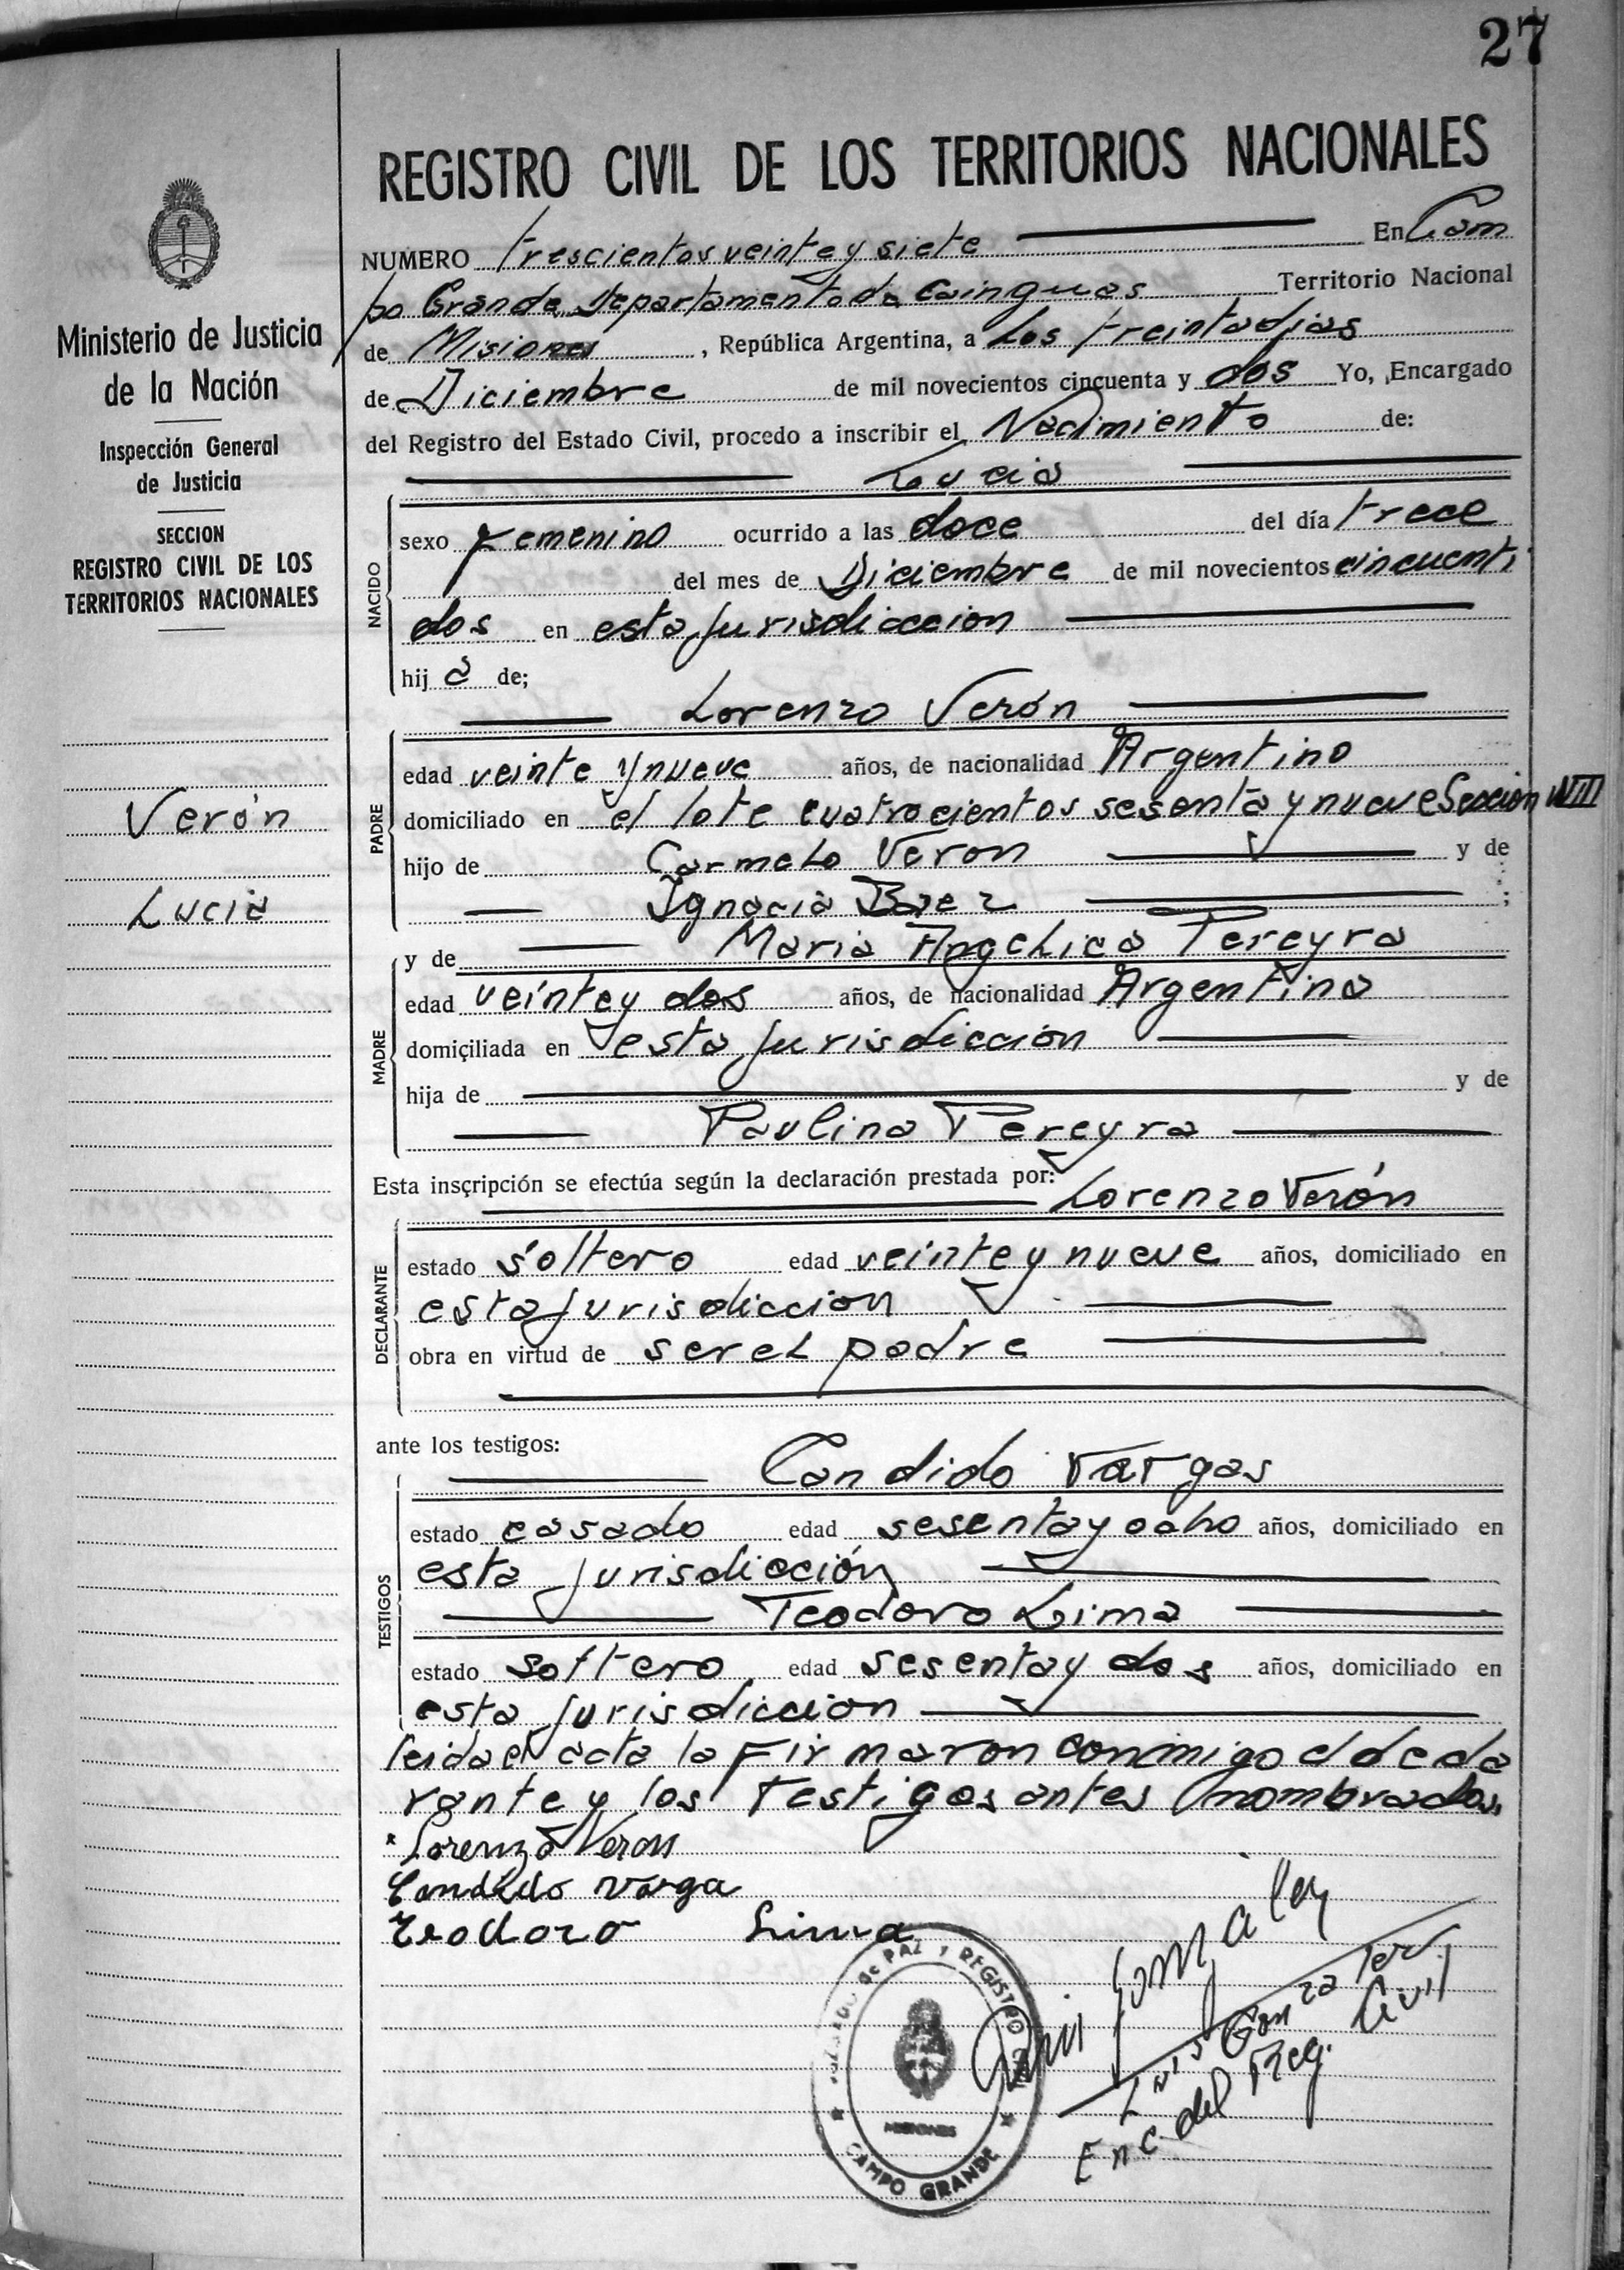 27
REGISTRO CIVIL DE LOS TERRITORIOS NACIONALES
NUMERO trescientos veinte y siete En Cam
po Grande, Departamento de Cainguas Territorio Nacional
de Misiones, República Argentina, a los treinta dias
de Diciembre de mil novecientos cincuenta y dos Yo, Encargado
del Registro del Estado Civil, procedo a inscribir el Nacimiento de:
Lucia
NACIDO
sexo Femenino ocurrido a las doce del día trece
del mes de Diciembre de mil novecientos cincuenti
dos en esta jurisdiccion
hij a de;
Lorenzo Verón
PADRE
edad veinte y nueve años, de nacionalidad Argentino
domiciliado en el lote cuatrocientos sesenta y nueve Seccion VIII
hijo de Carmelo Veron y de
Ignacia Baez ;
y de Maria Angelica Pereyra
MADRE
edad veinte y dos años, de nacionalidad Argentina
domiciliada en esta jurisdiccion
hija de y de
Paulina Pereyra
Esta inscripción se efectúa según la declaración prestada por:
Lorenzo Verón
DECLARANTE
estado soltero edad veinte y nueve años, domiciliado en
esta jurisdiccion
obra en virtud de ser el padre
ante los testigos:
Candido Vargas
TESTIGOS
estado casado edad sesenta y ocho años, domiciliado en
esta jurisdicción
Teodoro Lima
estado soltero edad sesenta y dos años, domiciliado en
esta jurisdiccion
leida el acta la firmaron conmigo el decla
rante y los testigos antes nombrados.
Lorenzo Veron
Candido Varga
Teodoro Lima
Luis Gonzalez
Luis Gonzalez
Enc. del Reg. Civil
JUZGADO de PAZ Y REGISTRO CIVIL
MISIONES
CAMPO GRANDE
Ministerio de Justicia
de la Nación
Inspección General
de Justicia
SECCION
REGISTRO CIVIL DE LOS
TERRITORIOS NACIONALES
Verón
Lucia